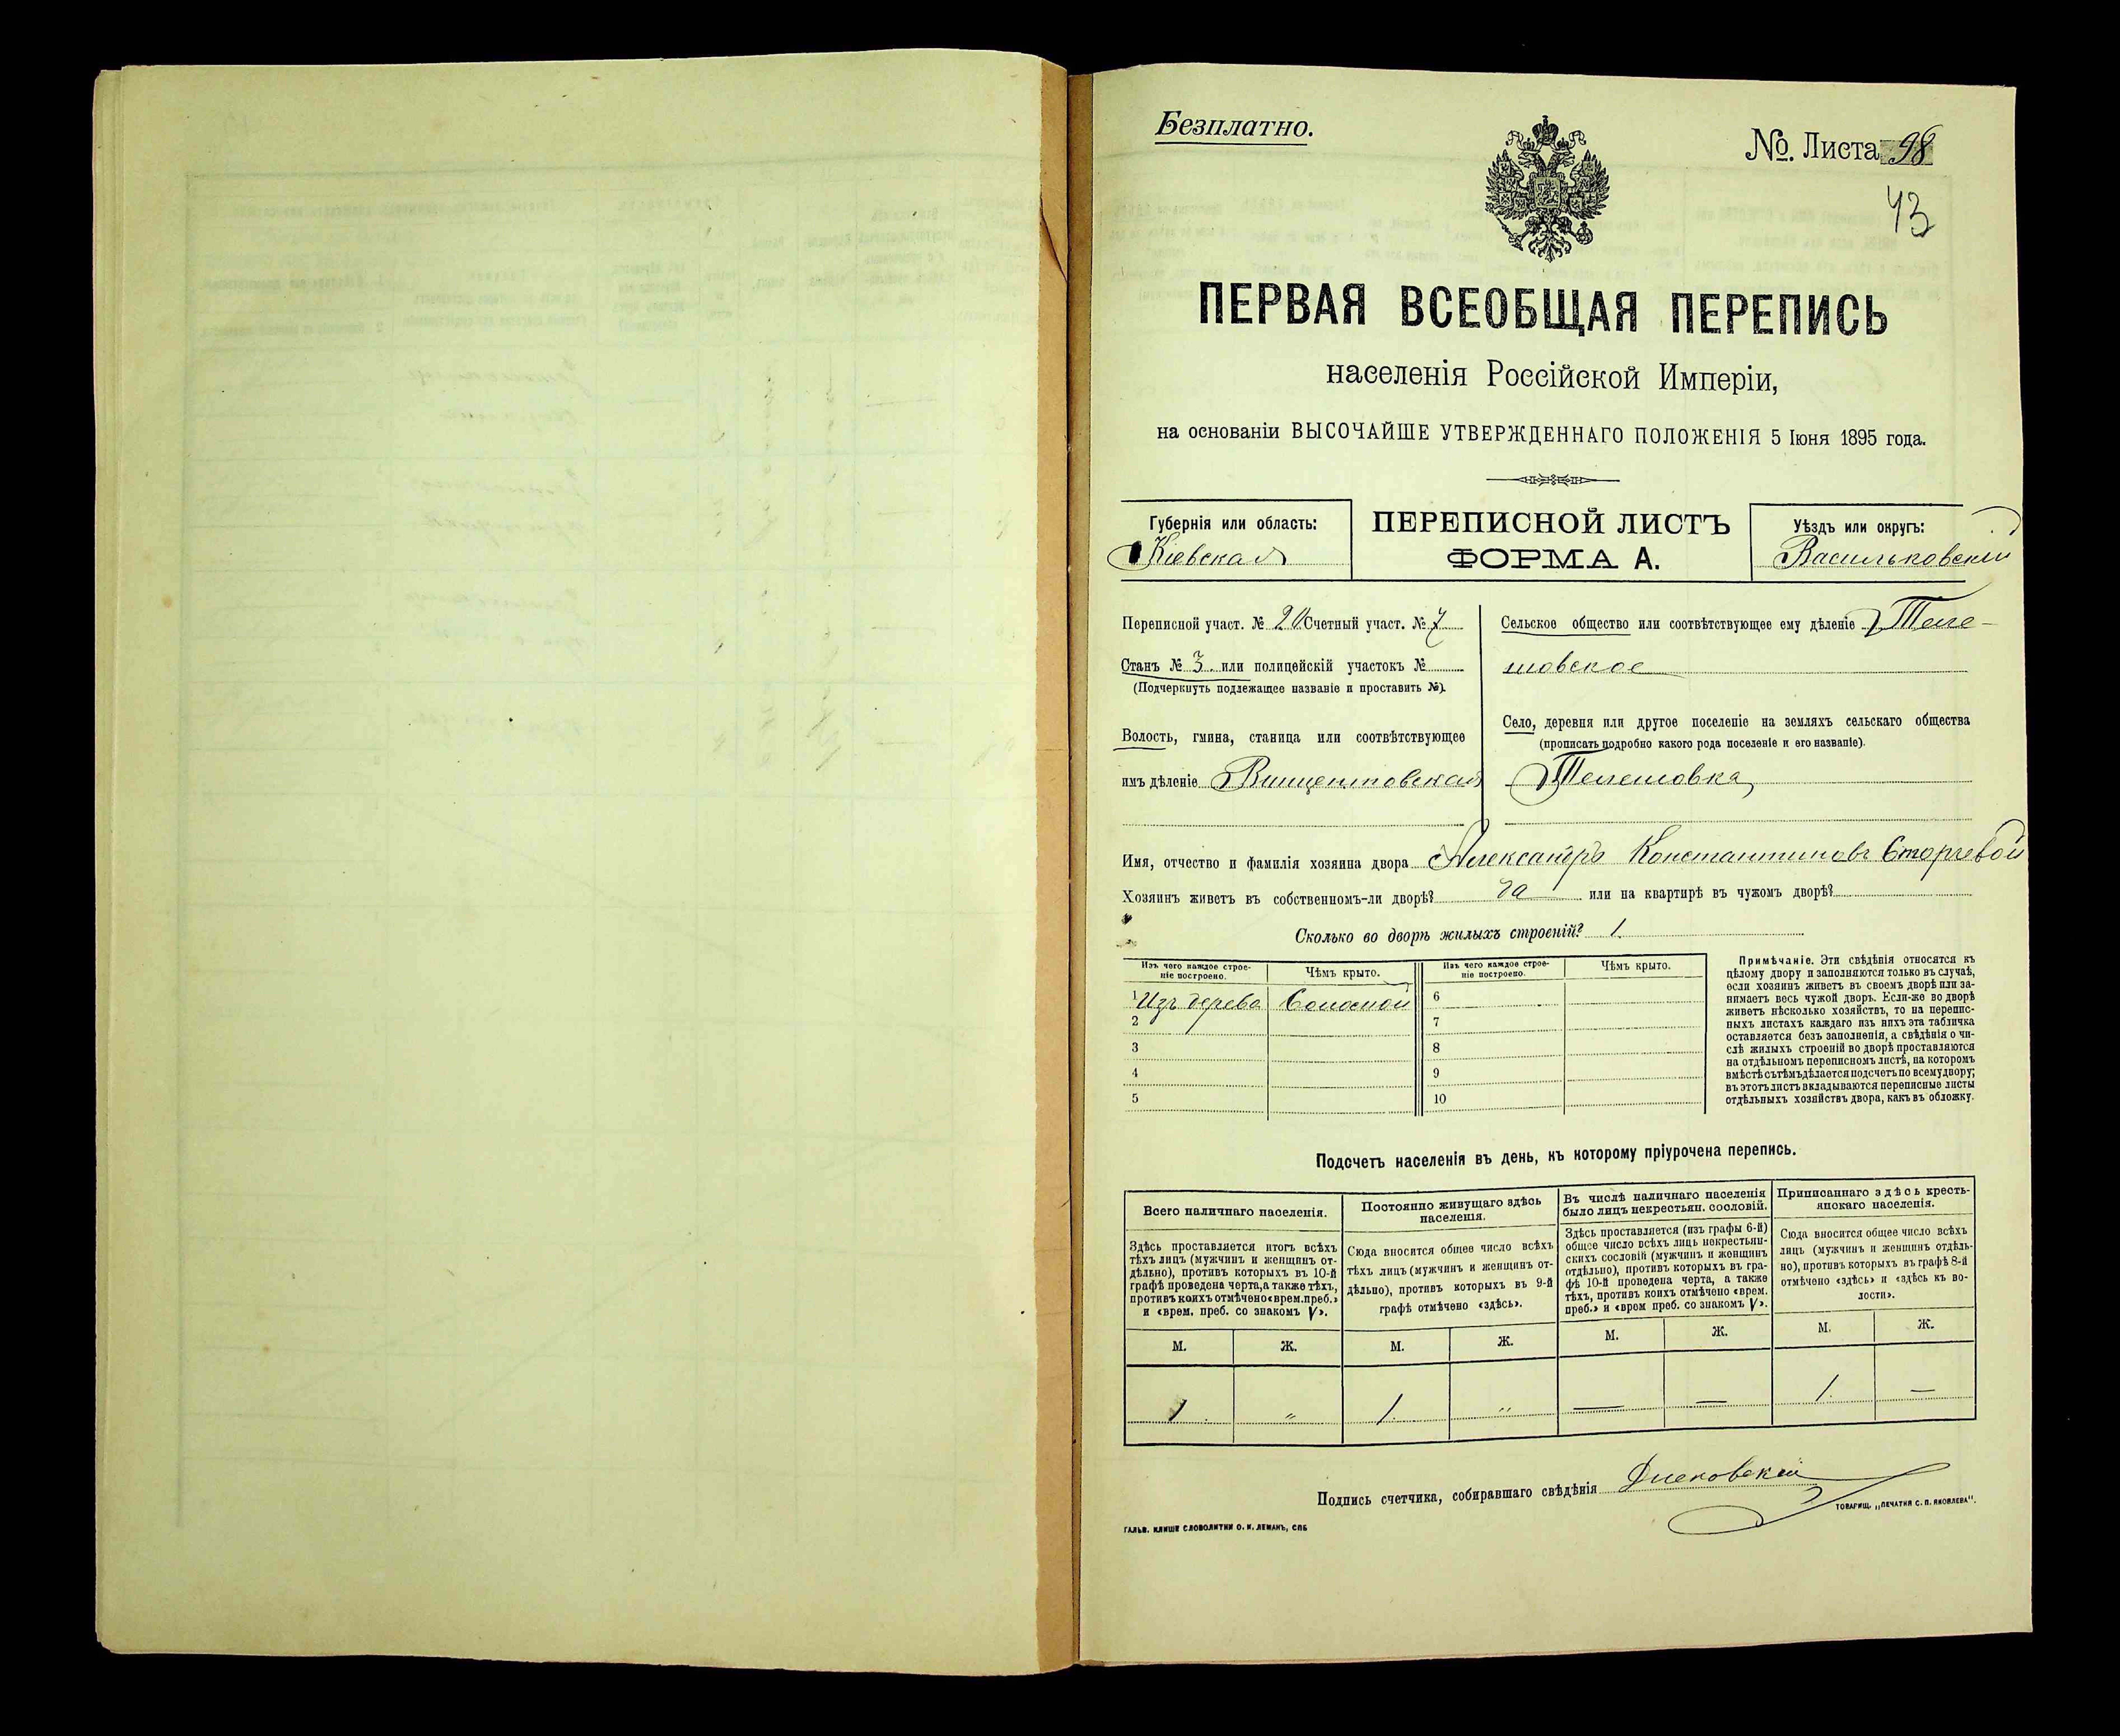 Безплатно.
№. Листа 98
43
ПЕРВАЯ ВСЕОБЩАЯ ПЕРЕПИСЬ
населенія Россійской Имперіи,
на основаніи ВЫСОЧАЙШЕ УТВЕРЖДЕННАГО ПОЛОЖЕНІЯ 5 Іюня 1895 года.
Губернія или область:
Кіевская
ПЕРЕПИСНОЙ ЛИСТЪ
ФОРМА А.
Уѣздъ или округъ:
Васильковскій
Переписной участ. № 20 Счетный участ. № 7
Станъ № 3. или полицейскій участокъ №
(Подчеркнуть подлежащее названіе и проставить №).
Волость, гмина, станица или соотвѣтствующее
имъ дѣленіе Винцентовская
Сельское общество или соотвѣтствующее ему дѣленіе Теле-
шовское
Село, деревня или другое поселеніе на земляхъ сельскаго общества
(прописать подробно какого рода поселеніе и его названіе).
Телешовка
Имя, отчество и фамилія хозяина двора Александръ Константиновъ Сторчевой
Хозяинъ живетъ въ собственномъ-ли дворѣ? да или на квартирѣ въ чужомъ дворѣ?
Сколько во дворѣ жилыхъ строеній? 1.
Изъ чего каждое строе-
ніе построено.
Чѣмъ крыто.
Изъ чего каждое строе-
ніе построено.
Чѣмъ крыто.
1 Изъ дерева Соломой 6
2 7
3 8
4 9
5 10
Примѣчаніе. Эти свѣдѣнія относятся къ
цѣлому двору и заполняются только въ случаѣ,
если хозяинъ живетъ въ своемъ дворѣ или за-
нимаетъ весь чужой дворъ. Если-же во дворѣ
живетъ нѣсколько хозяйствъ, то на перепис-
ныхъ листахъ каждаго изъ нихъ эта табличка
оставляется безъ заполненія, а свѣдѣнія о чи-
слѣ жилыхъ строеній во дворѣ проставляются
на отдѣльномъ переписномъ листѣ, на которомъ
вмѣстѣ съ тѣмъ дѣлается подсчетъ по всему двору;
въ этотъ листъ вкладываются переписные листы
отдѣльныхъ хозяйствъ двора, какъ въ обложку.
Подсчетъ населенія въ день, къ которому пріурочена перепись.
Всего наличнаго населенія.
Здѣсь проставляется итогъ всѣхъ
тѣхъ лицъ (мужчинъ и женщинъ от-
дѣльно), противъ которыхъ въ 10-й
графѣ проведена черта, а также тѣхъ,
противъ коихъ отмѣчено «врем. преб.»
и «врем. преб. со знакомъ V».
Постоянно живущаго здѣсь
населенія.
Сюда вносится общее число всѣхъ
тѣхъ лицъ (мужчинъ и женщинъ от-
дѣльно), противъ которыхъ въ 9-й
графѣ отмѣчено «здѣсь».
Въ числѣ наличнаго населенія
было лицъ некрестьян. сословій.
Здѣсь проставляется (изъ графы 6-й)
общее число всѣхъ лицъ некрестьян-
скихъ сословій (мужчинъ и женщинъ
отдѣльно), противъ которыхъ въ гра-
фѣ 10-й проведена черта, а также
тѣхъ, противъ коихъ отмѣчено «врем.
преб.» и «врем преб. со знакомъ V».
Приписаннаго здѣсь кресть-
янскаго населенія.
Сюда вносится общее число всѣхъ
лицъ (мужчинъ и женщинъ отдѣль-
но), противъ которыхъ въ графѣ 8-й
отмѣчено «здѣсь» и «здѣсь къ во-
лости».
М. Ж. М. Ж. М. Ж. М. Ж.
1. „ 1. „ — — 1. —
Подпись счетчика, собиравшаго свѣдѣнія
ГАЛЬВ. КЛИШЕ СЛОВОЛИТНИ О. И. ЛЕМАНЪ, СПБ
ТОВАРИЩ. „ПЕЧАТНЯ С. П. ЯКОВЛЕВА".